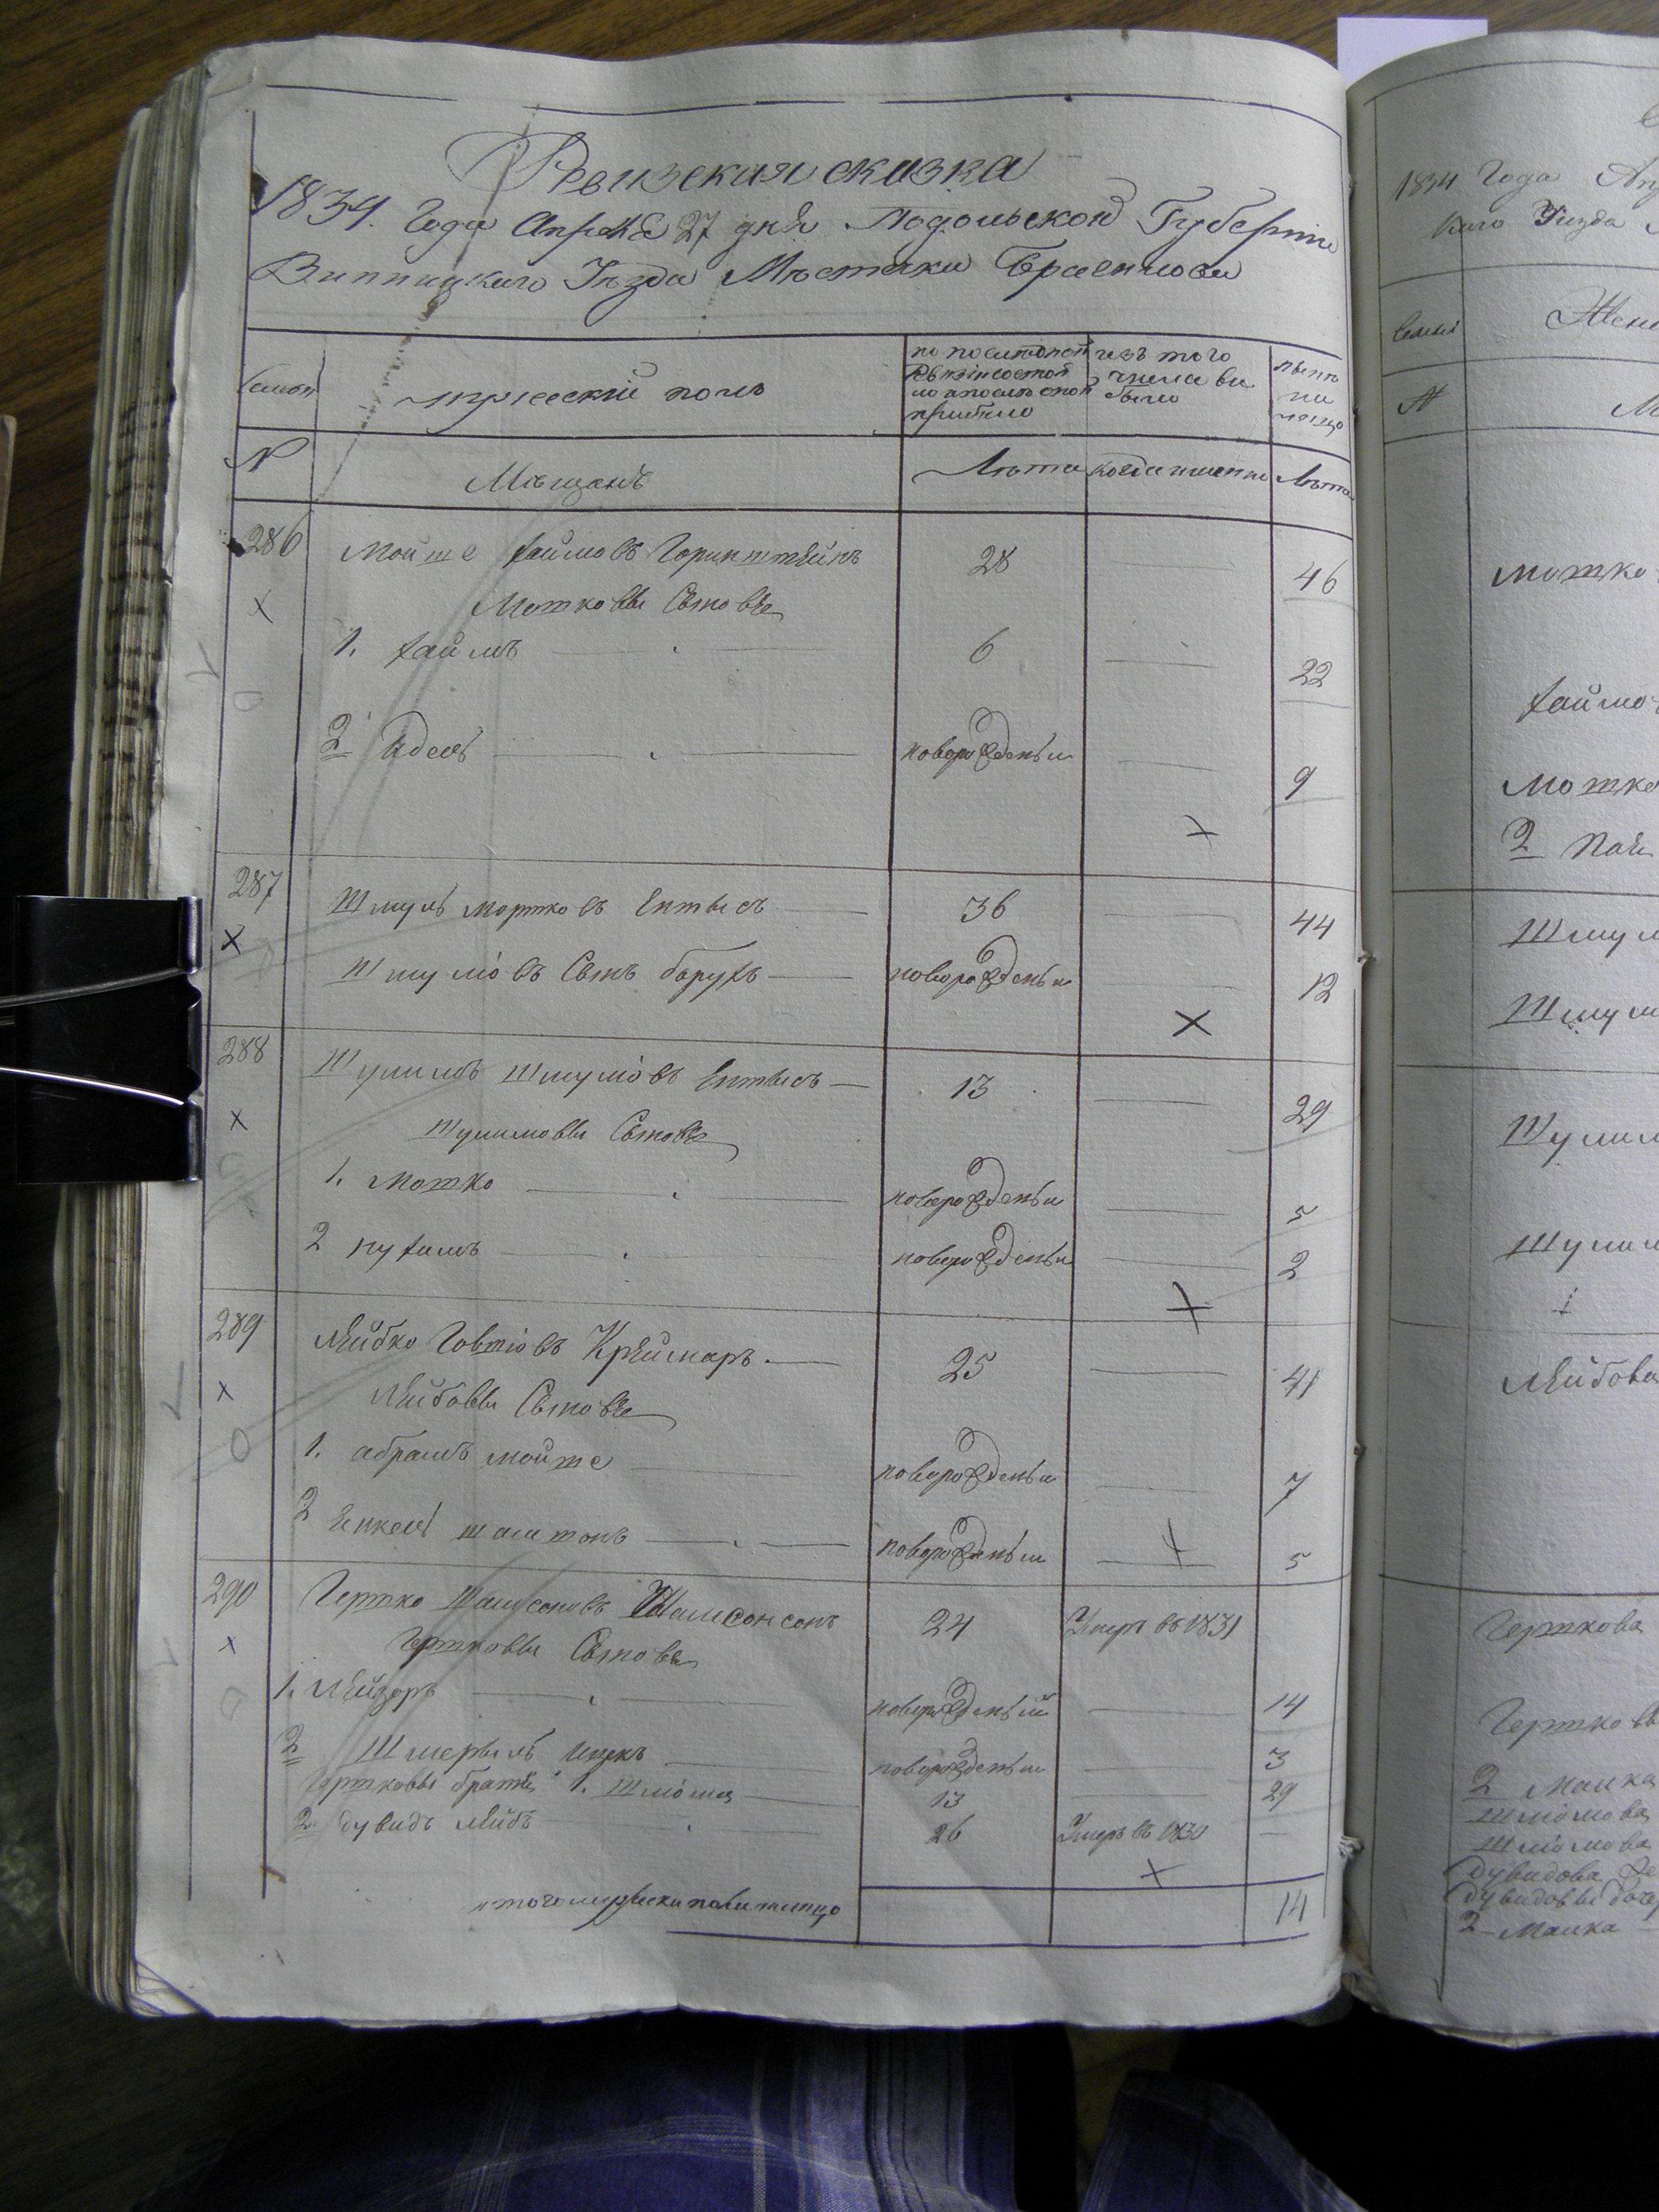 Ревизская сказка
1834. Года Апреля 27 дня Подольской Губернии
Винницкаго Уезда Местечки Браенлова
Семьи
мужеский полъ
по последней ревизии состояло и после оной прибыло
изъ того числа выбыло
ныне на лицо
№
Мещанъ
Лета
когда именно
Лета
286 Мойше Хаймовъ Горинштейнъ 28 46
Мошковы Сыновье
1. Хаймъ 6 22
2 Идель новорожденый 9
287 Шмуль Мортковъ Ентысъ 36 44
Шмулiовъ Сынъ Борухъ новорожденый 12
288 Шулимъ Шмулiовъ Ентысъ 13 29
Шулимовы Сыновье
1. Мотко новорожденый 5
2 Нухимъ новорожденый 2
289 Лейбко Говшiовъ Креймаръ 25 41
Лейбовы Сыновье
1. абрамъ мойше новорожденый 7
2 Янкель новорожденый 5
290 Гершко Шамсоновъ Шамсонсонъ 24 Умеръ въ 1831
Гершковы Сыновье
1. Лейзоръ новорожденый 14
2 Шмерыль Ицекъ новорожденый 3
Гершковы братья 1. Шлiома 13 29
2. Дувидъ Лейбъ 26 Умеръ въ 1830
итого мужеска пола налицо 14
1834 Года
каго Уезда
Семьи
№
Мотко
Хаймо
Мотко
2
Шмул
Шмул
Шулим
Шулим
1
Лейбова
Гершкова
Гершковы
2 Малка
Шлiомова
Шлiомова
Дувидова
Дувидовы доче
2 Малка